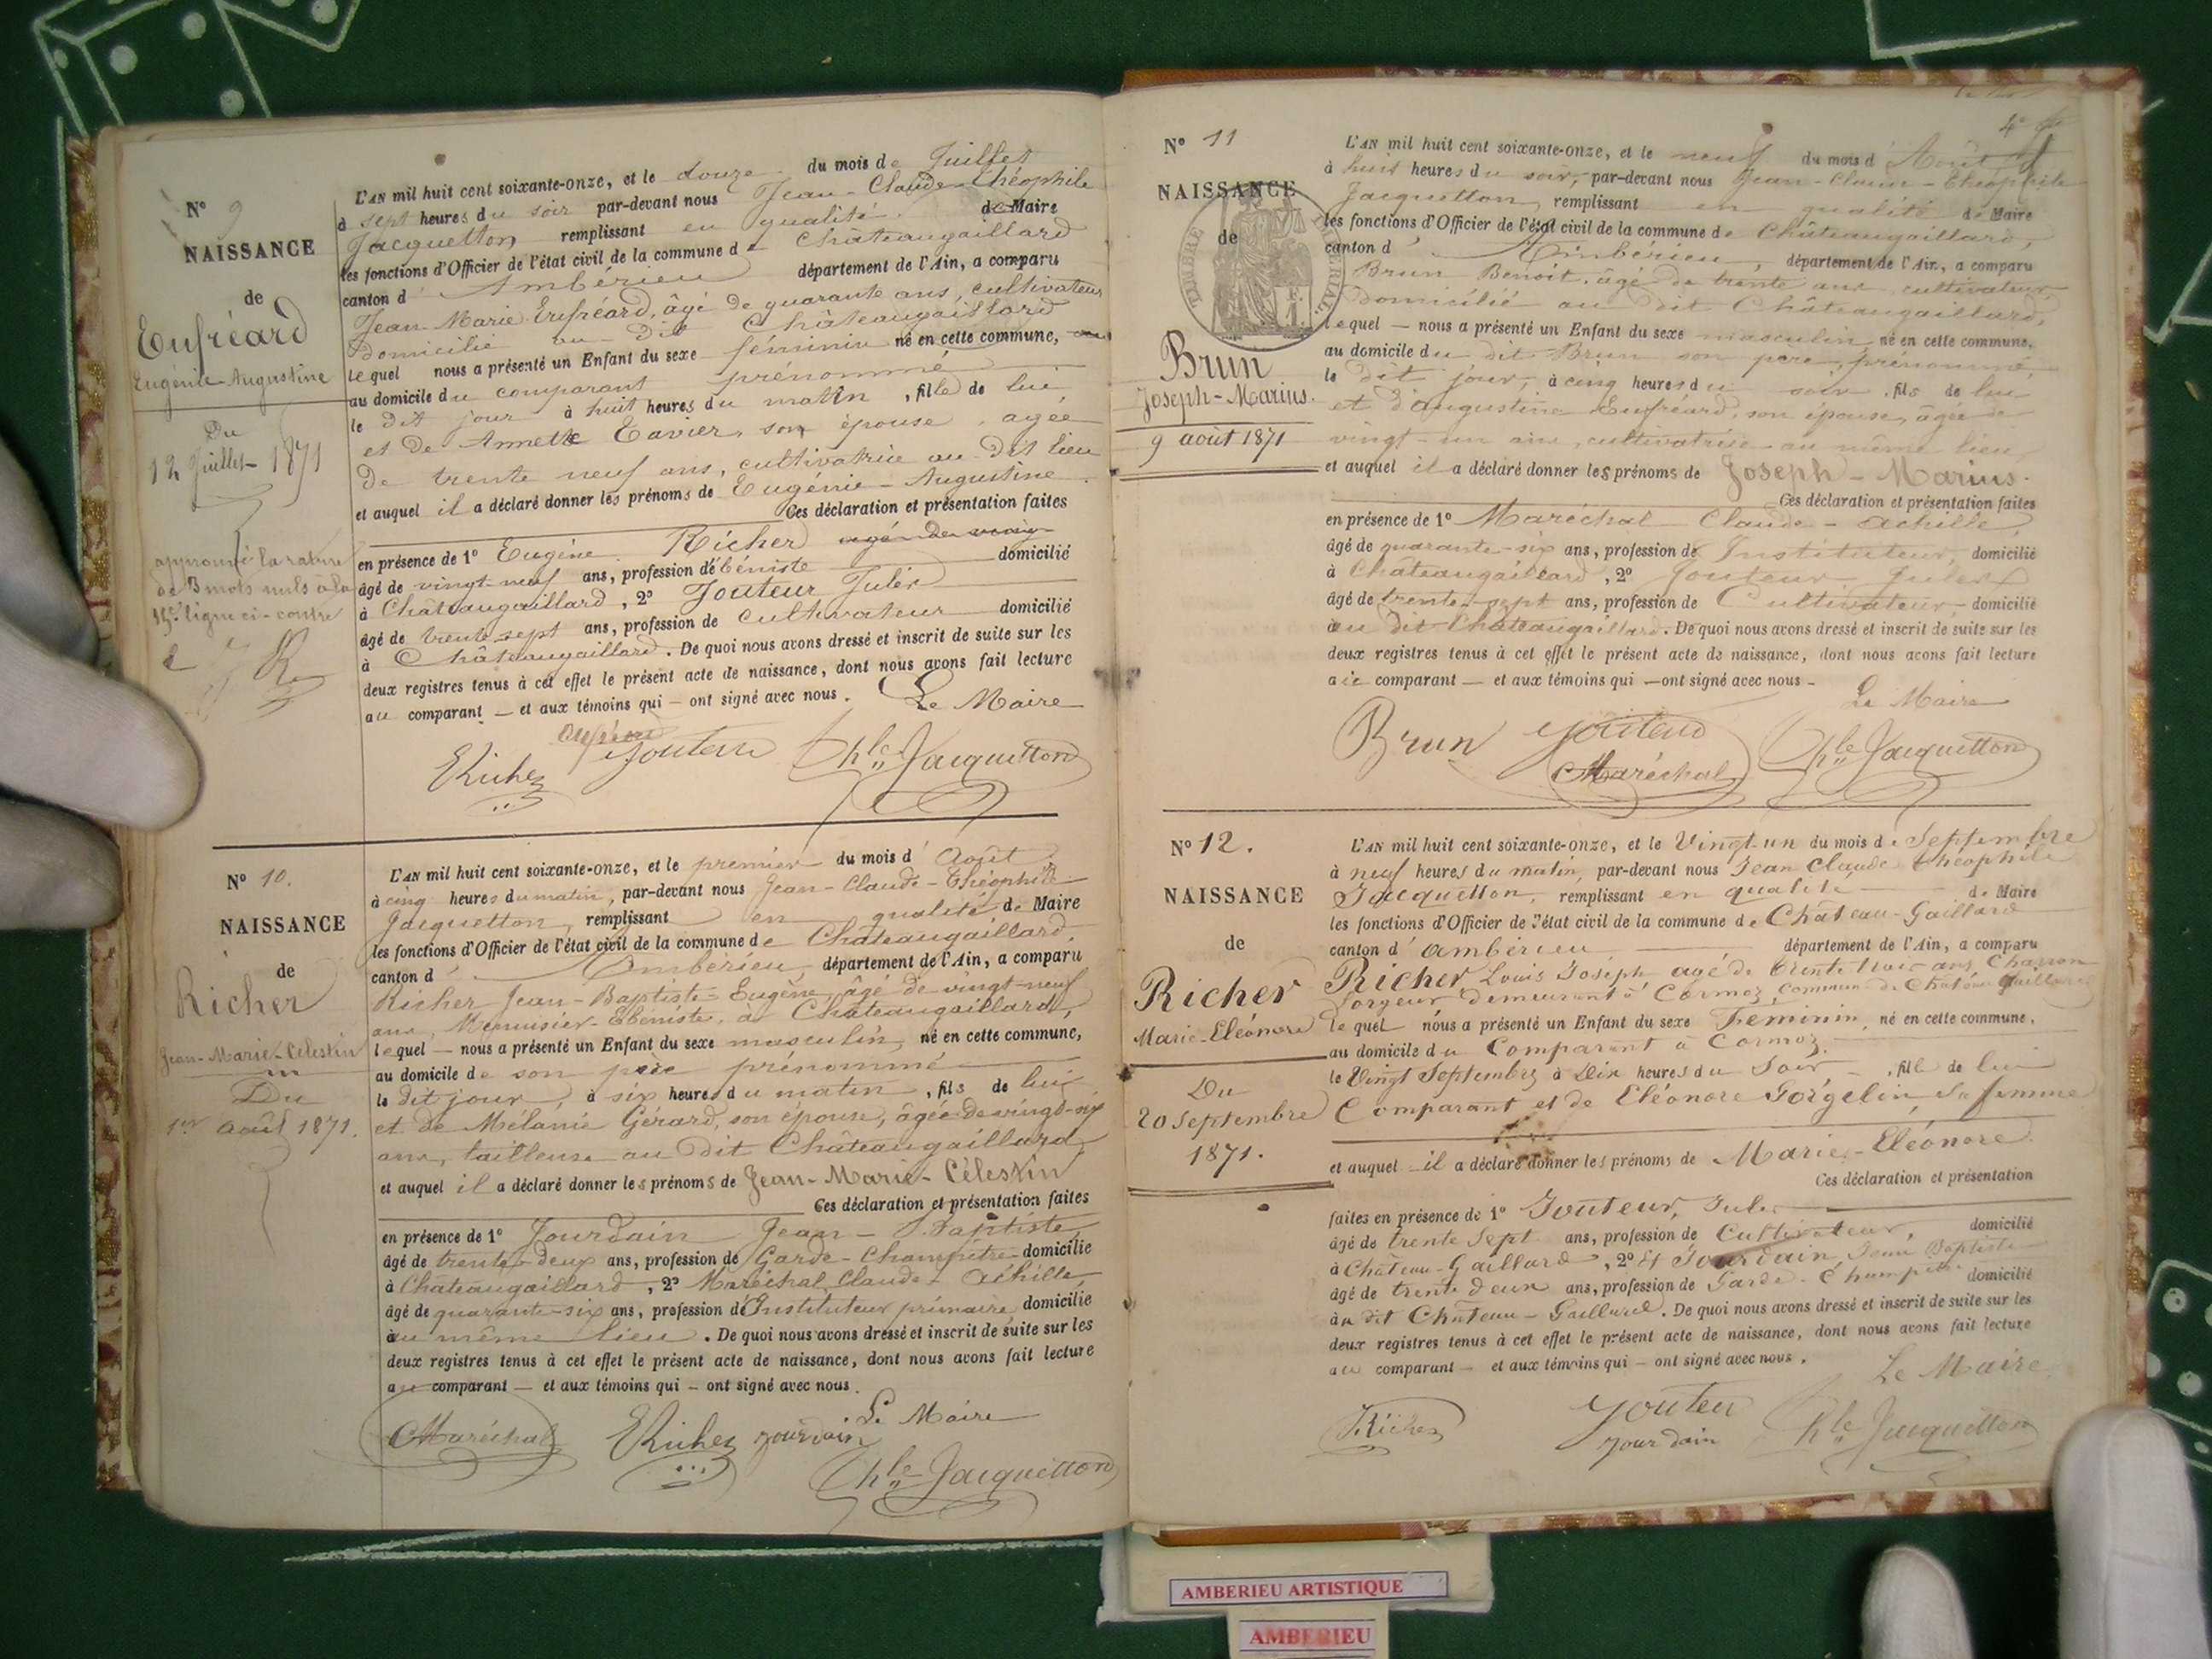 N° 9
NAISSANCE
de
Eufréard
Eugénie-Augustine
Du
12 Juillet 1871
approuvé la rature
de 3 mots nuls à la
15e ligne ci-contre
L'AN mil huit cent soixante-onze, et le douze du mois de Juillet
à sept heures du soir par-devant nous Jean-Claude-Théophile
Jacquetton remplissant en qualité de Maire
les fonctions d'Officier de l'état civil de la commune de Châteaugaillard
canton d'Ambérieu département de l'Ain, a comparu
Jean-Marie Eufréard, âgé de quarante ans, cultivateur
domicilié au dit Châteaugaillard
lequel nous a présenté un Enfant du sexe féminin né en cette commune,
au domicile du comparant prénommé
le dit jour à huit heures du matin, fille de lui
et de Annette Tavier, son épouse, agée
de trente neuf ans, cultivatrice au dit lieu
et auquel il a déclaré donner les prénoms de Eugénie-Augustine.
Ces déclaration et présentation faites
en présence de 1° Eugène Richer agé de vingt
âgé de vingt-neuf ans, profession d'ébéniste domicilié
à Châteaugaillard, 2° Jouteur Jules
âgé de trente sept ans, profession de cultivateur domicilié
à Châteaugaillard. De quoi nous avons dressé et inscrit de suite sur les
deux registres tenus à cet effet le présent acte de naissance, dont nous avons fait lecture
au comparant — et aux témoins qui — ont signé avec nous.
Le Maire
ERicher Jouteur Thle Jacquetton
N° 10.
NAISSANCE
de
Richer
Jean-Marie-Célestin
Du
1er Août 1871.
L'AN mil huit cent soixante-onze, et le premier du mois d'Août
à cinq heures du matin, par-devant nous Jean-Claude-Théophile
Jacquetton, remplissant en qualité de Maire
les fonctions d'Officier de l'état civil de la commune de Châteaugaillard,
canton d'Ambérieu, département de l'Ain, a comparu
Richer Jean-Baptiste-Eugène, âgé de vingt-neuf
ans, Menuisier-Ebéniste, à Châteaugaillard,
lequel — nous a présenté un Enfant du sexe masculin, né en cette commune,
au domicile de son père prénommé
le dit jour, à six heures du matin, fils de lui
et de Mélanie Gérard, son épouse, âgée de vingt-six
ans, tailleuse au dit Châteaugaillard
et auquel il a déclaré donner les prénoms de Jean-Marie-Célestin
Ces déclaration et présentation faites
en présence de 1° Jourdain Jean-Baptiste,
âgé de trente-deux ans, profession de Garde-Champêtre domicilié
à Châteaugaillard, 2° Maréchal Claude-Achille,
âgé de quarante-six ans, profession d'Instituteur primaire domicilié
au même lieu. De quoi nous avons dressé et inscrit de suite sur les
deux registres tenus à cet effet le présent acte de naissance, dont nous avons fait lecture
au comparant — et aux témoins qui — ont signé avec nous.
Le Maire
CMaréchal ERicher Jourdain
Thle Jacquetton
N° 11
NAISSANCE
de
TIMBRE IMPÉRIAL
Brun
Joseph-Marius.
9 août 1871
L'AN mil huit cent soixante-onze, et le neuf du mois d'Août
à huit heures du soir, par-devant nous Jean-Claude-Théophile
Jacquetton, remplissant en qualité de Maire
les fonctions d'Officier de l'état civil de la commune de Châteaugaillard,
canton d'Ambérieu, département de l'Ain, a comparu
Brun Benoit, âgé de trente ans, cultivateur,
domicilié au dit Châteaugaillard,
lequel — nous a présenté un Enfant du sexe masculin né en cette commune,
au domicile du dit Brun son père, prénommé,
le dit jour, à cinq heures du soir, fils de lui
et d'Augustine Eufréard, son épouse, âgée de
vingt-un ans, cultivatrice au même lieu
et auquel il a déclaré donner les prénoms de Joseph-Marius.
Ces déclaration et présentation faites
en présence de 1° Maréchal Claude-Achille,
âgé de quarante-six ans, profession de Instituteur, domicilié
à Châteaugaillard, 2° Jouteur Jules
âgé de trente-sept ans, profession de Cultivateur domicilié
au dit Châteaugaillard. De quoi nous avons dressé et inscrit de suite sur les
deux registres tenus à cet effet le présent acte de naissance, dont nous avons fait lecture
au comparant — et aux témoins qui — ont signé avec nous —
Le Maire
Brun Jouteur
CMaréchal Thle Jacquetton
N° 12.
NAISSANCE
de
Richer
Marie-Eléonore
Du
20 Septembre
1871.
L'AN mil huit cent soixante-onze, et le Vingt-un du mois de Septembre
à neuf heures du matin, par-devant nous Jean Claude Théophile
Jacquetton, remplissant en qualité de Maire
les fonctions d'Officier de l'état civil de la commune de Château-Gaillard
canton d'Ambérieu département de l'Ain, a comparu
Richer, Louis Joseph agé de trente trois ans, Charron
forgeur demeurant à Cormoz, commune de Château Gaillard
lequel nous a présenté un Enfant du sexe Féminin, né en cette commune,
au domicile du Comparant à Cormoz.
le Vingt Septembre à Dix heures du Soir, fille de lui
Comparant et de Eléonore Gorgelin, sa femme
et auquel il a déclaré donner les prénoms de Marie-Eléonore
Ces déclaration et présentation
faites en présence de 1° Jouteur, Jules
âgé de trente sept ans, profession de Cultivateur, domicilié
à Château-Gaillard, 2° Et Jourdain, Jean Baptiste
âgé de trente deux ans, profession de Garde-Champêtre domicilié
au dit Château-Gaillard. De quoi nous avons dressé et inscrit de suite sur les
deux registres tenus à cet effet le présent acte de naissance, dont nous avons fait lecture
au comparant — et aux témoins qui — ont signé avec nous.
Le Maire
Richer Jouteur
Jourdain Thle Jacquetton
AMBERIEU ARTISTIQUE
AMBERIEU